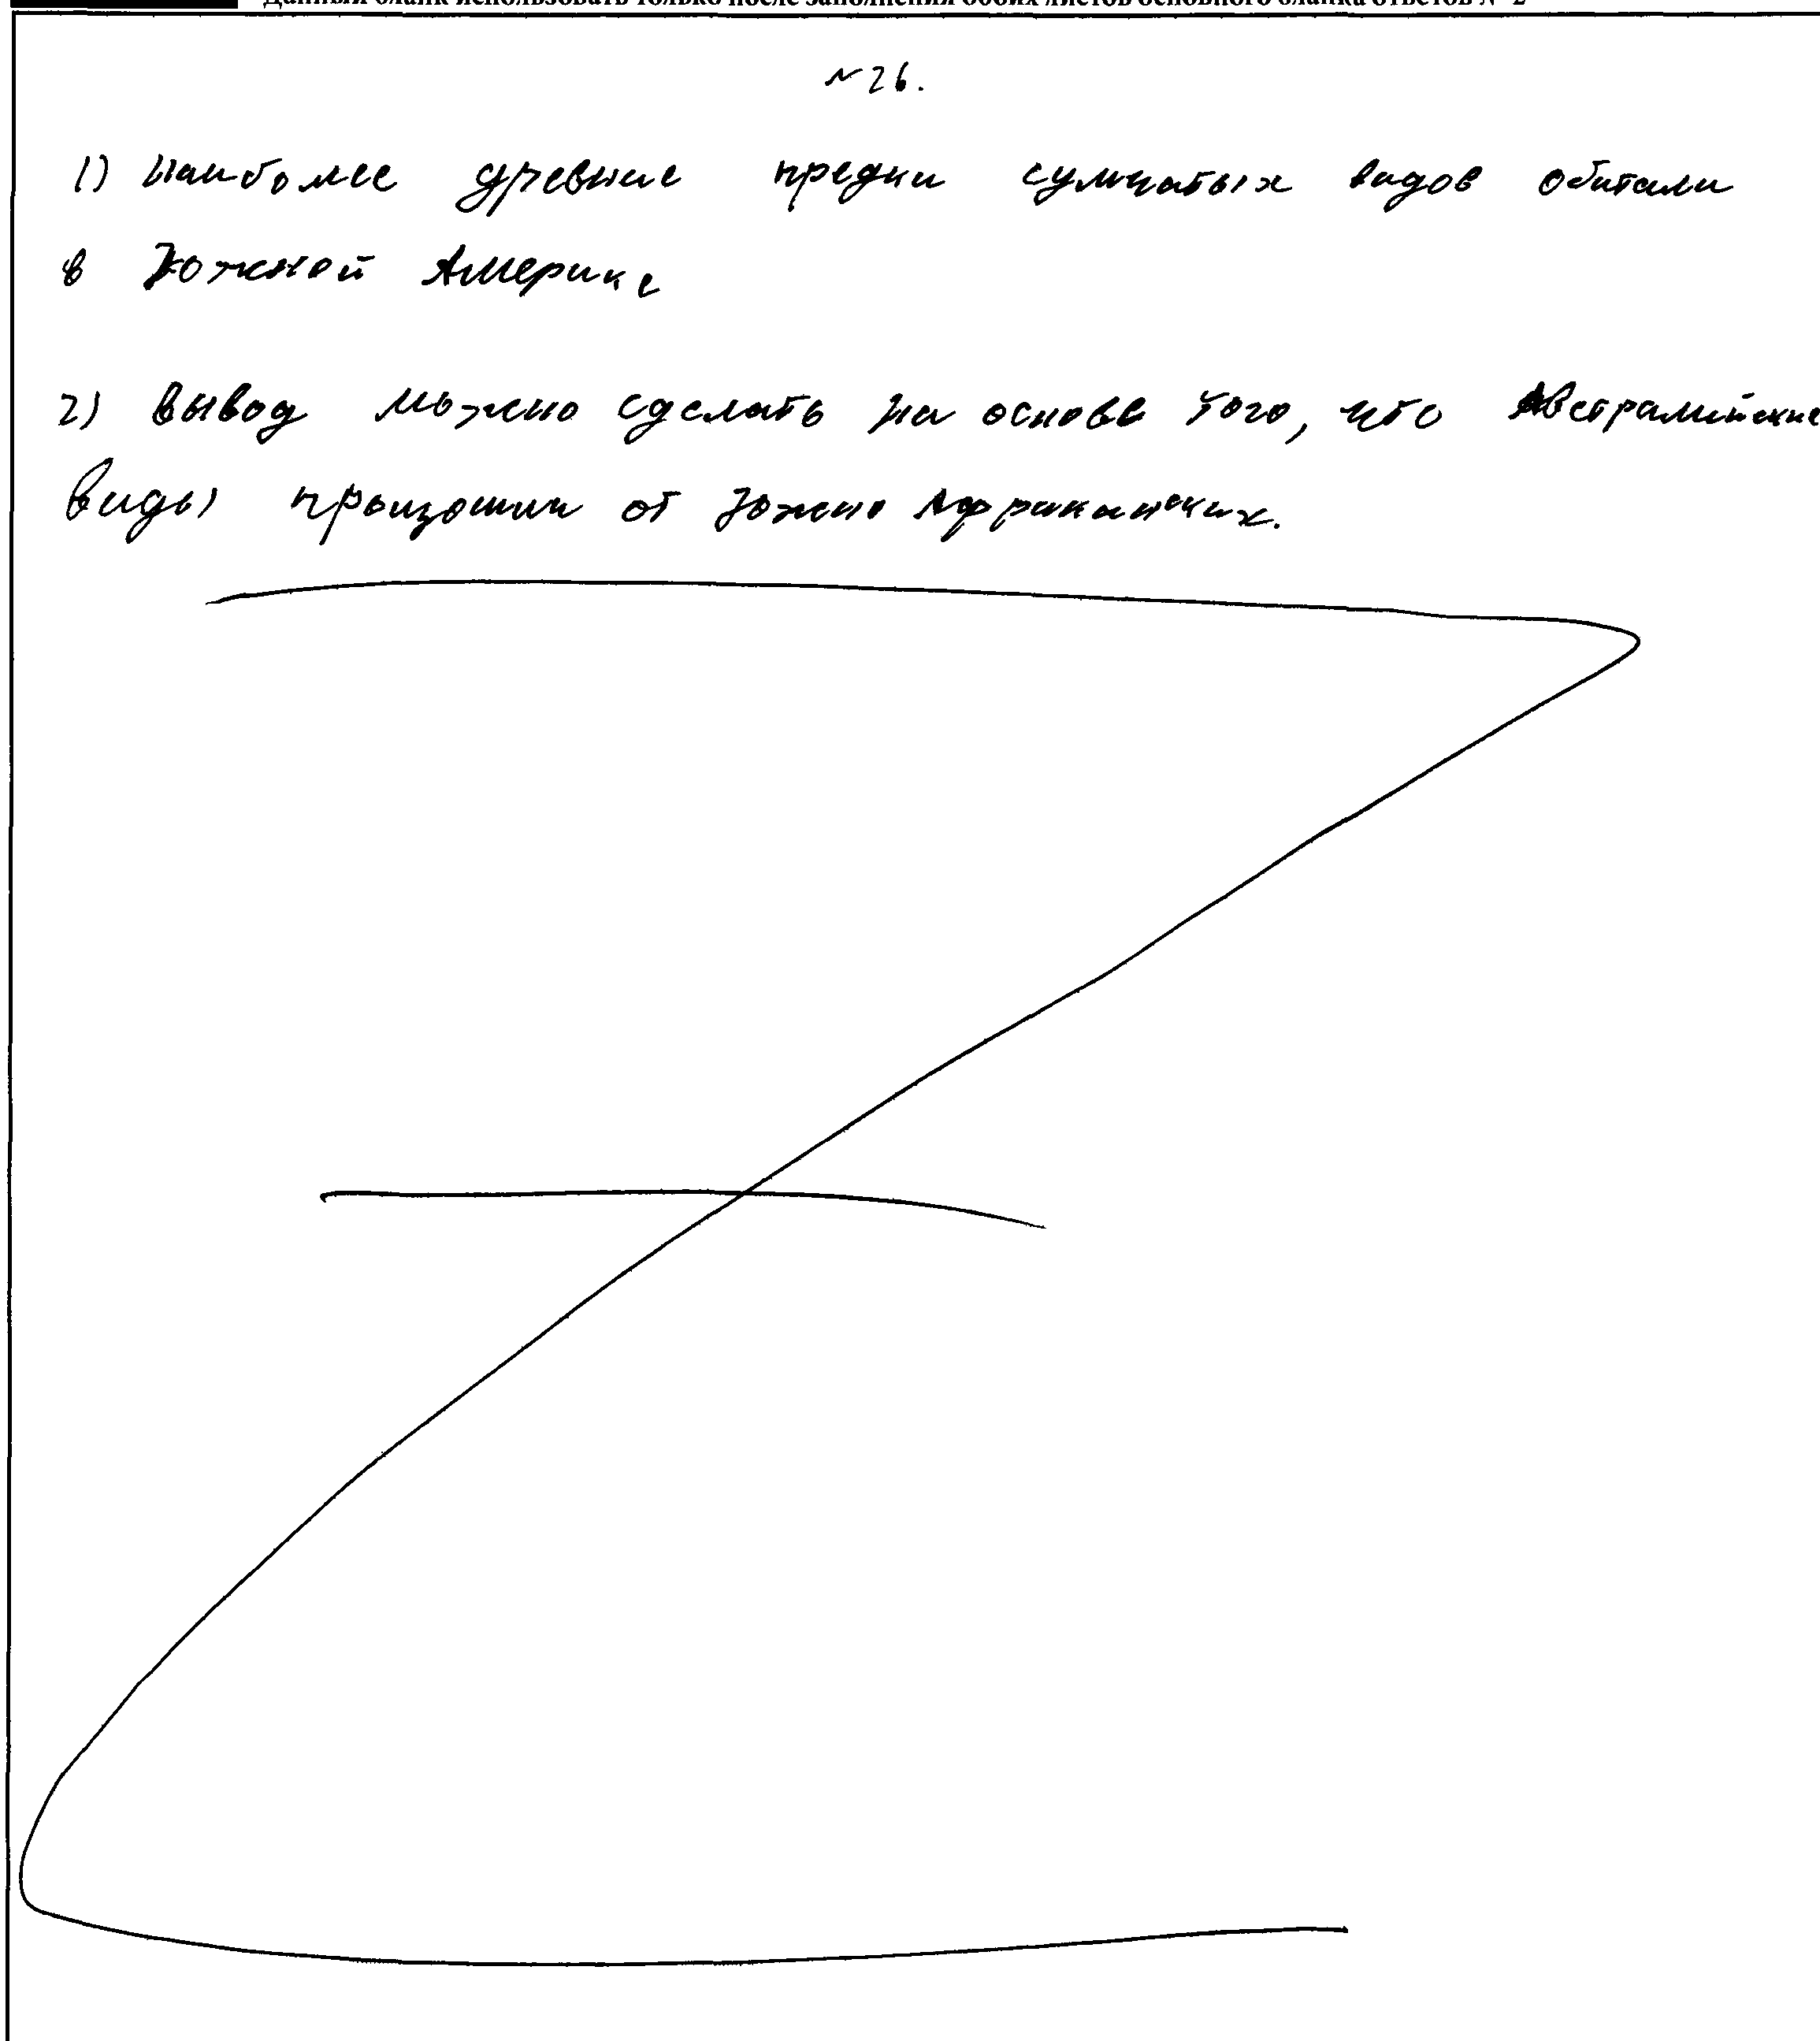 Данный бланк использовать только после заполнения обоих листов основного бланка ответов № 2
№26.
1) Наиболее древние предки сумчатых видов обитали
в Южной Америке
2) Вывод можно сделать на основе того, что Австралийские
виды произошли от Южно Африканских.